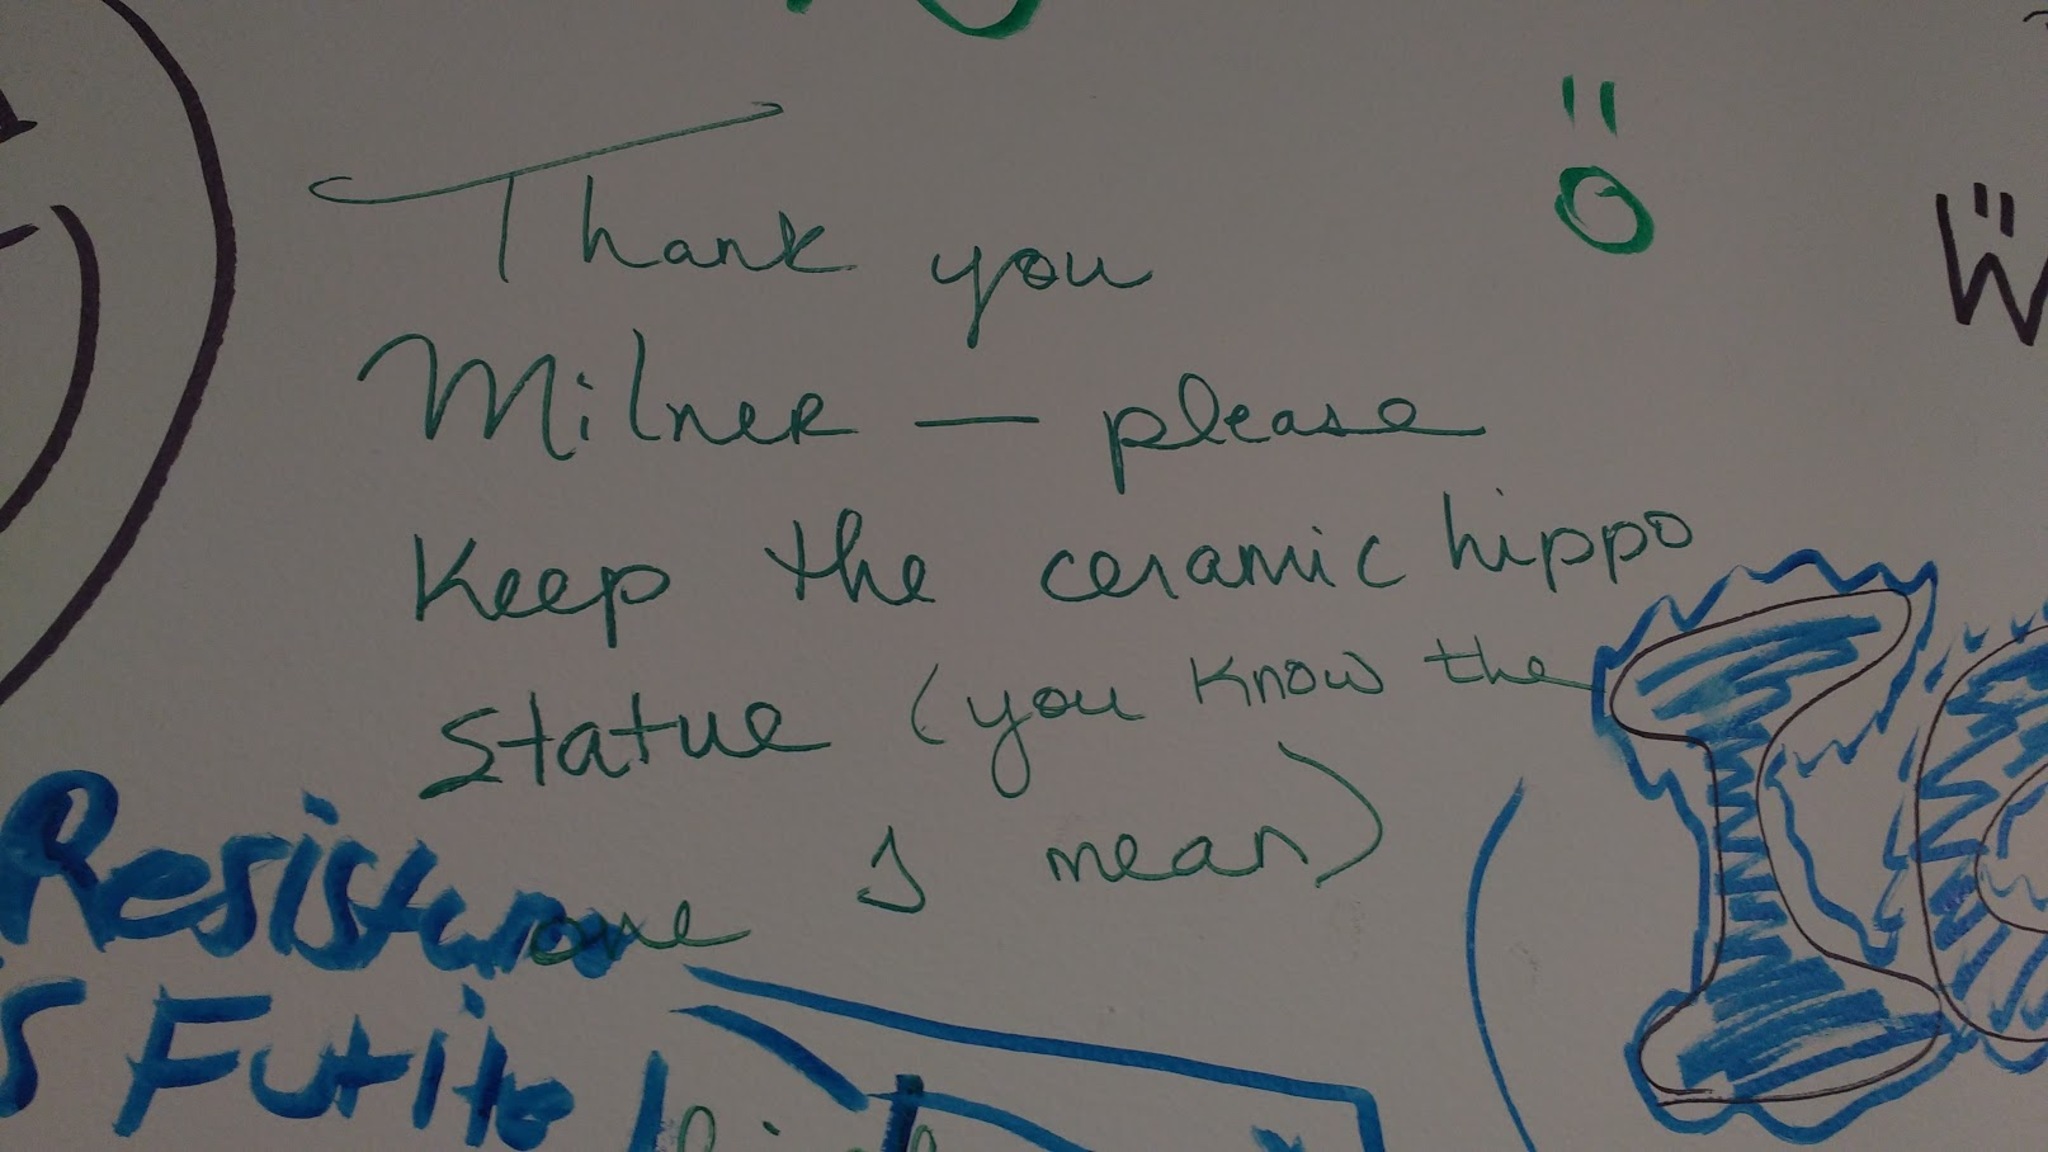 Thank you
Milner — please
Keep the ceramic hippo
statue (you know the
one I mean)
Resistance
is Futile
W